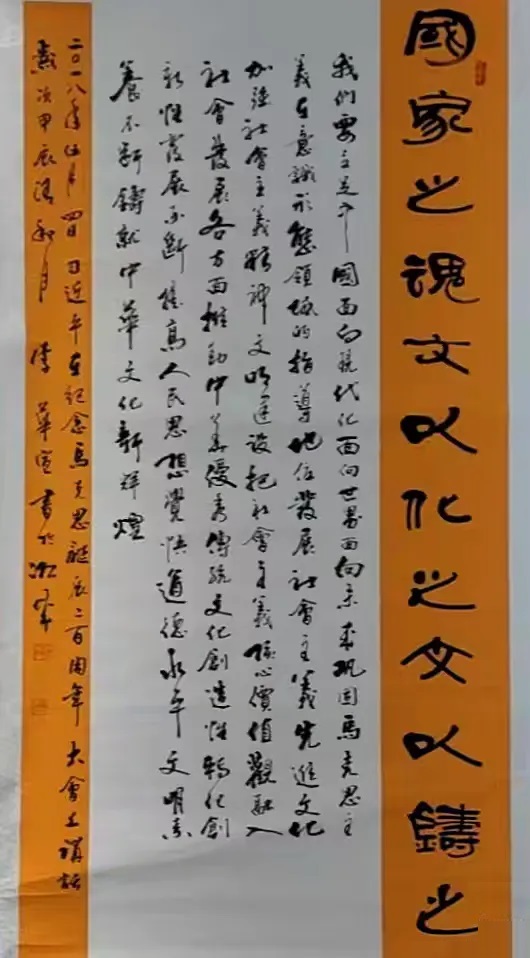 國家之魂文以化之文以鑄之
我們要立足中國面向現代化面向世界面向未來巩固馬克思主
義在意識形態領域的指導地位發展社會主義先進文化
加強社會主義精神文明建設把社會主義核心價值觀融入
社會發展各方面推動中華優秀傳統文化創造性轉化創
新性發展不斷提高人民思想覺悟道德水平文明素
養不斷鑄就中華文化新輝煌
二〇一八年伍月四日习近平在紀念馬克思誕辰二百周年大會上講話
歲次甲辰清和月 華宣書於湘